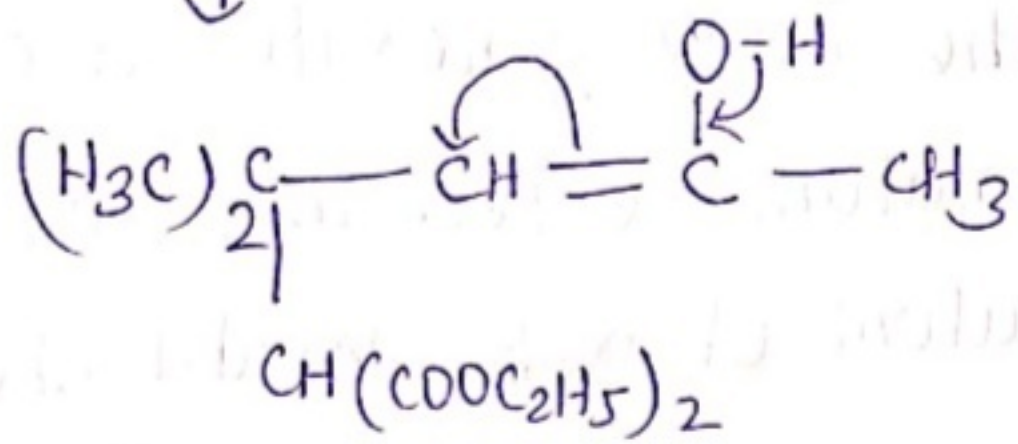 O-H
(H3C)2C—CH=C—CH3
CH(COOC2H5)2